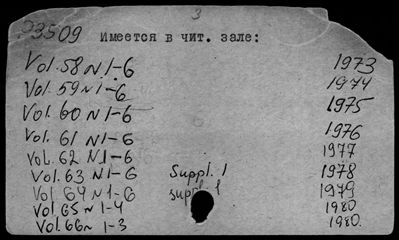 3
P3509 Имеется в чит. зале:
Vol. 58 N 1-6 1973
Vol. 59 N 1-6 1974
Vol. 60 N 1-6 1975
Vol. 61 N 1-6 1976
Vol. 62 N 1-6 1977
Vol. 63 N 1-6 Suppl. 1 1978
Vol 64 N 1-6 suppl. 1 1979
Vol 65 N 1-4 1980
Vol. 66 N 1-3 1980.